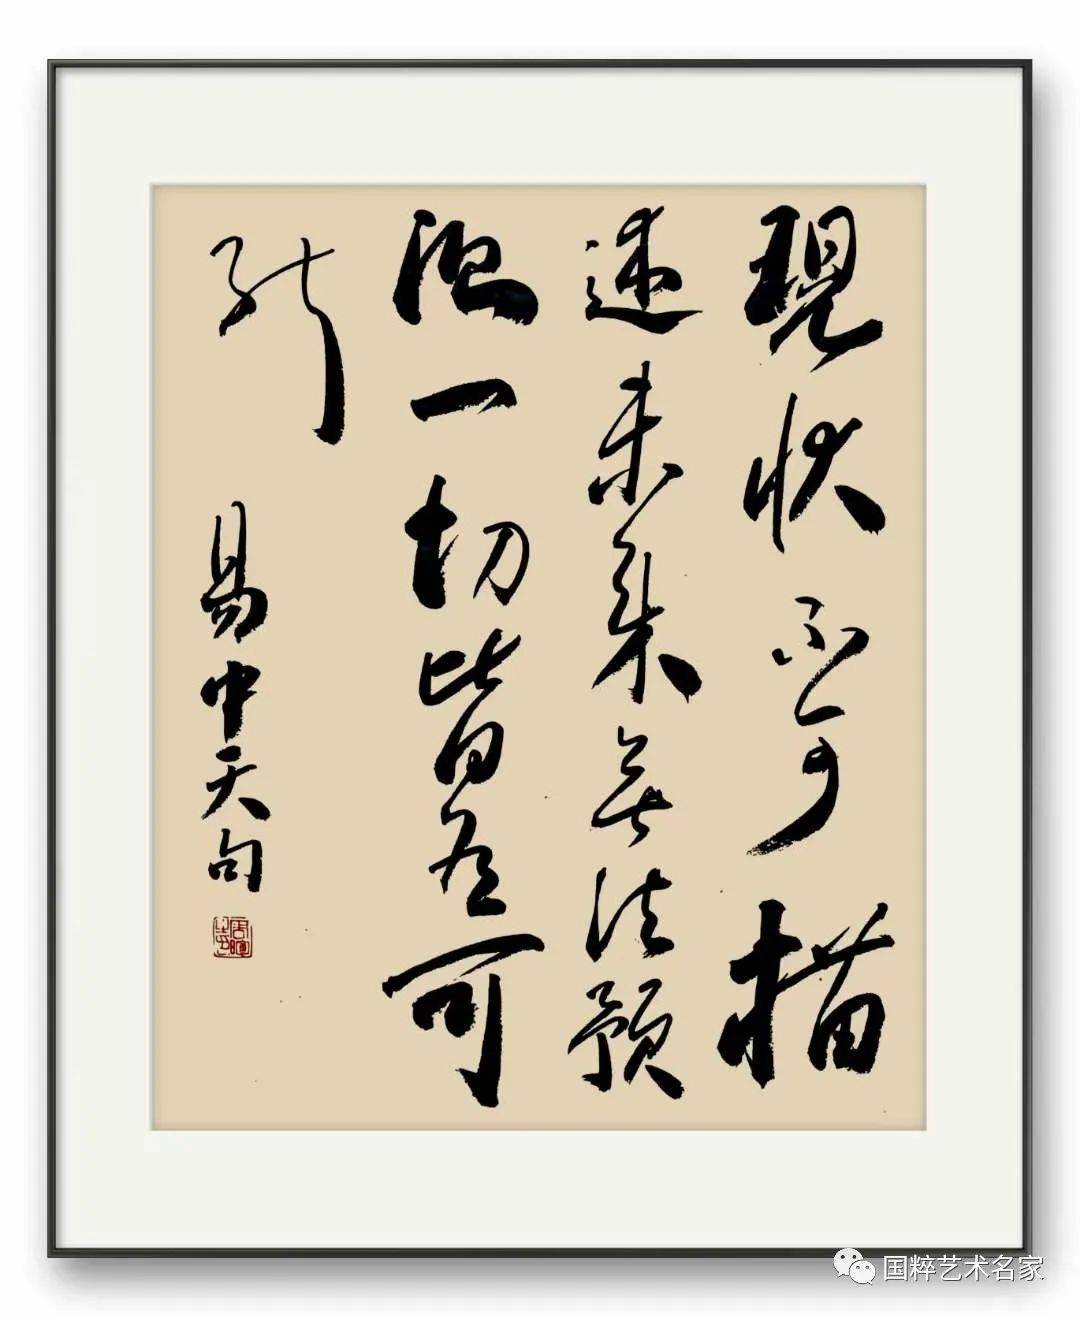 現状不可描
述未來無法預
測一切皆有可
能
易中天句
国粹艺术名家